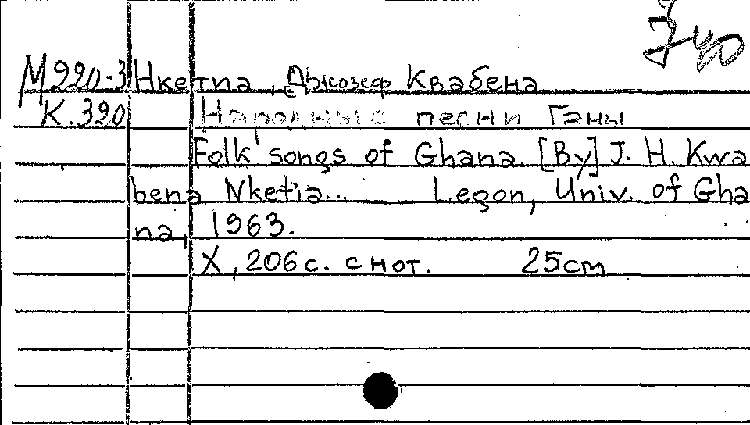 М990-3 Нкетиа, Джозеф Квабена
К.390 Народные песни Ганы
Folk songs of Ghana. [By] J. H. Kwa
bena Nketia.. Legon, Univ. of Gha
na, 1963.
X, 206с. с нот. 25cm